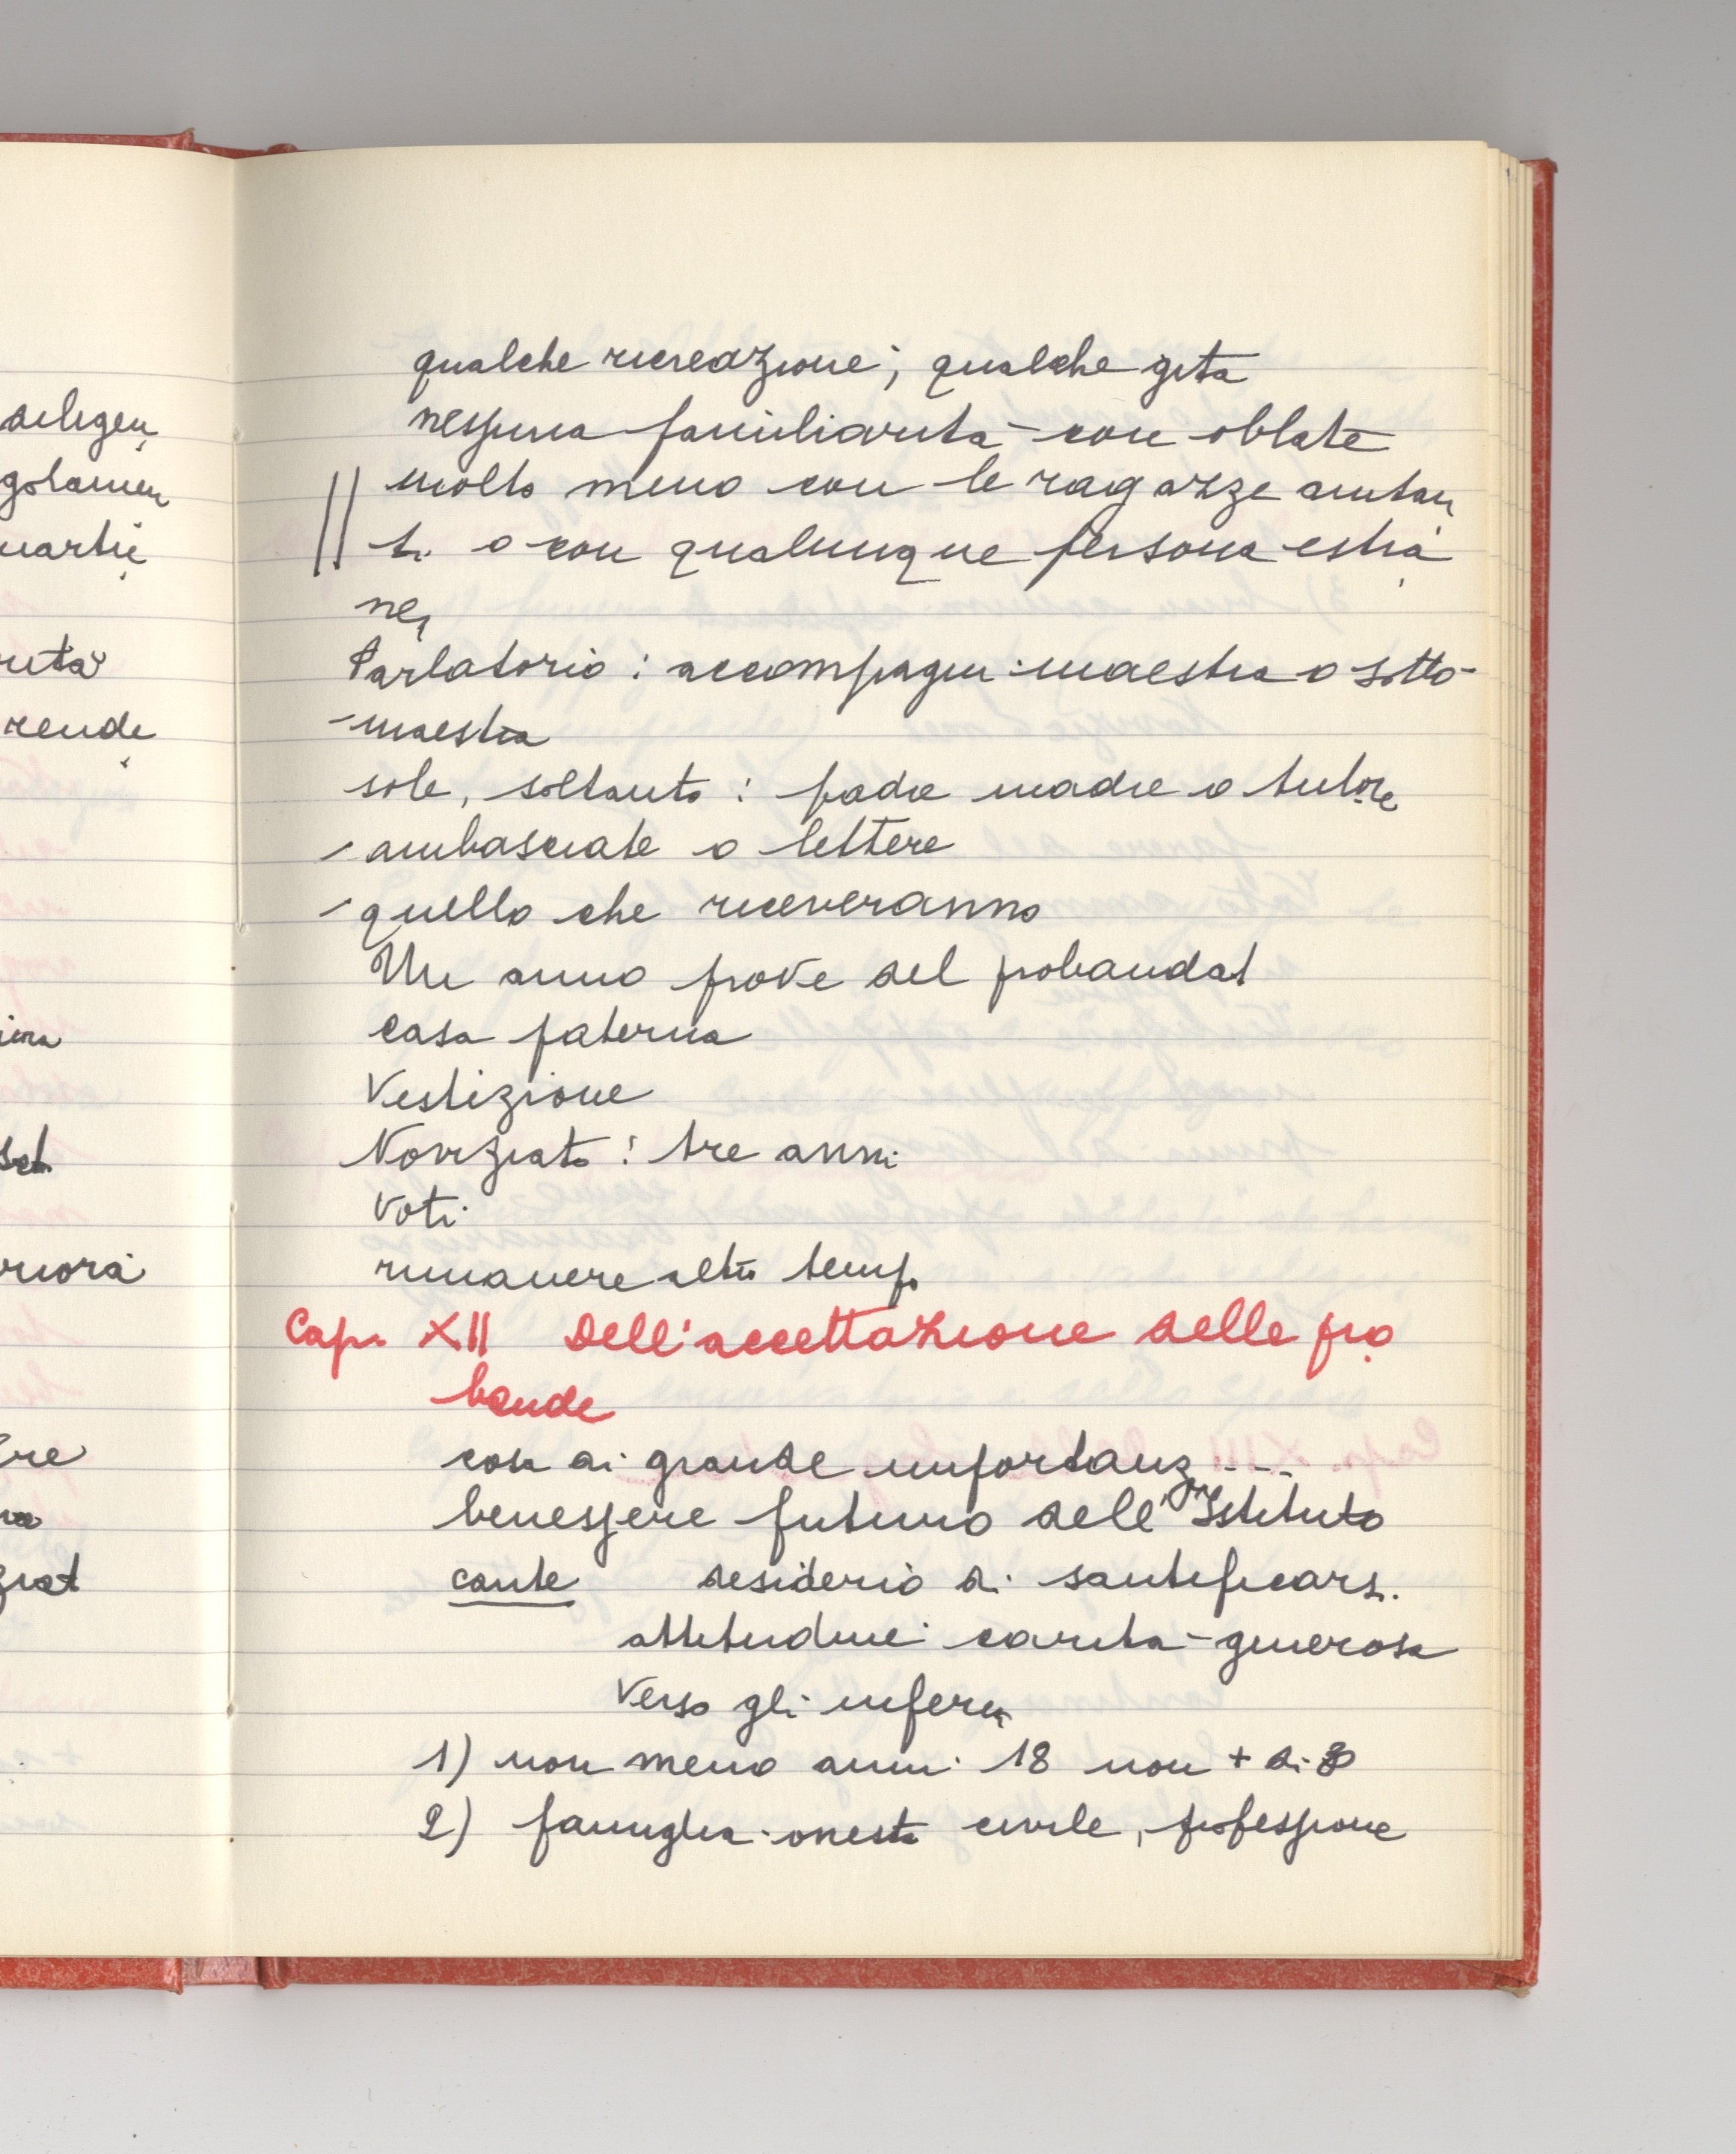 qualche ricreazione; qualche gita
nessuna familiarità con oblate
molto meno con le ragazze aiutan
ti o con qualunque persona estra
nea
Parlatorio: accompagn: maestra o sotto-
-maestra
sole, soltanto: padre madre o tutore
- ambasciate o lettere
- quello che riceveranno
Un anno prove del probandat
casa paterna
Vestizione
Noviziato: tre anni
Voti
rimanere altro tempo
Cap. XII Dell'accettazione delle pro
bande
cosa di grande importanz ---
benessere futuro dell'Istituto
caute desiderio di santificarsi
attitudine carità generosa
verso gli infermi
1) non meno anni 18 non + di 30
2) famiglia onesta civile, professione
diligen
golamen
martie
rità
rende
riora
ziat